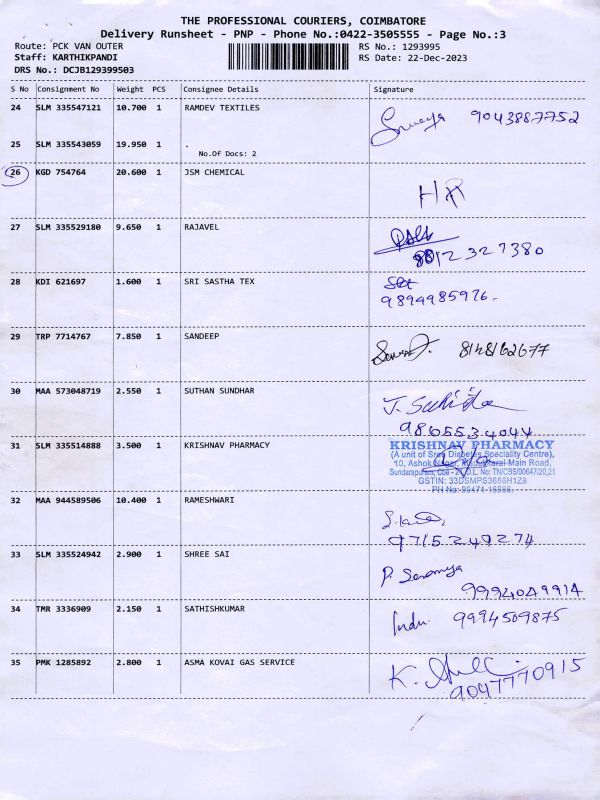 THE PROFESSIONAL COURIERS, COIMBATORE
Delivery Runsheet - PNP - Phone No.:0422-3505555 - Page No.:3
Route: PCK VAN OUTER RS No.: 1293995
Staff: KARTHIKPANDI RS Date: 22-Dec-2023
DRS No.: DCJB129399503
S No Consignment No Weight PCS Consignee Details Signature
24 SLM 335547121 10.700 1 RAMDEV TEXTILES
9043887752
25 SLM 335543059 19.950 1 .
No.Of Docs: 2
26 KGD 754764 20.600 1 JSM CHEMICAL
27 SLM 335529180 9.650 1 RAJAVEL
28 KDI 621697 1.600 1 SRI SASTHA TEX
9894985976.
29 TRP 7714767 7.850 1 SANDEEP
8148162677
30 MAA 573048719 2.550 1 SUTHAN SUNDHAR
9865534044
31 SLM 335514888 3.500 1 KRISHNAV PHARMACY
KRISHNAV PHARMACY
(A unit of Sree Diabetes Speciality Centre),
10, Ashok Nagar, Main Road,
GSTIN: 33DSMPS3666H1Z8
32 MAA 944589506 10.400 1 RAMESHWARI
9715249274
33 SLM 335524942 2.900 1 SHREE SAI
9994049914
34 TMR 3336909 2.150 1 SATHISHKUMAR
Indu 9994509875
35 PMK 1285892 2.800 1 ASMA KOVAI GAS SERVICE
9047770915